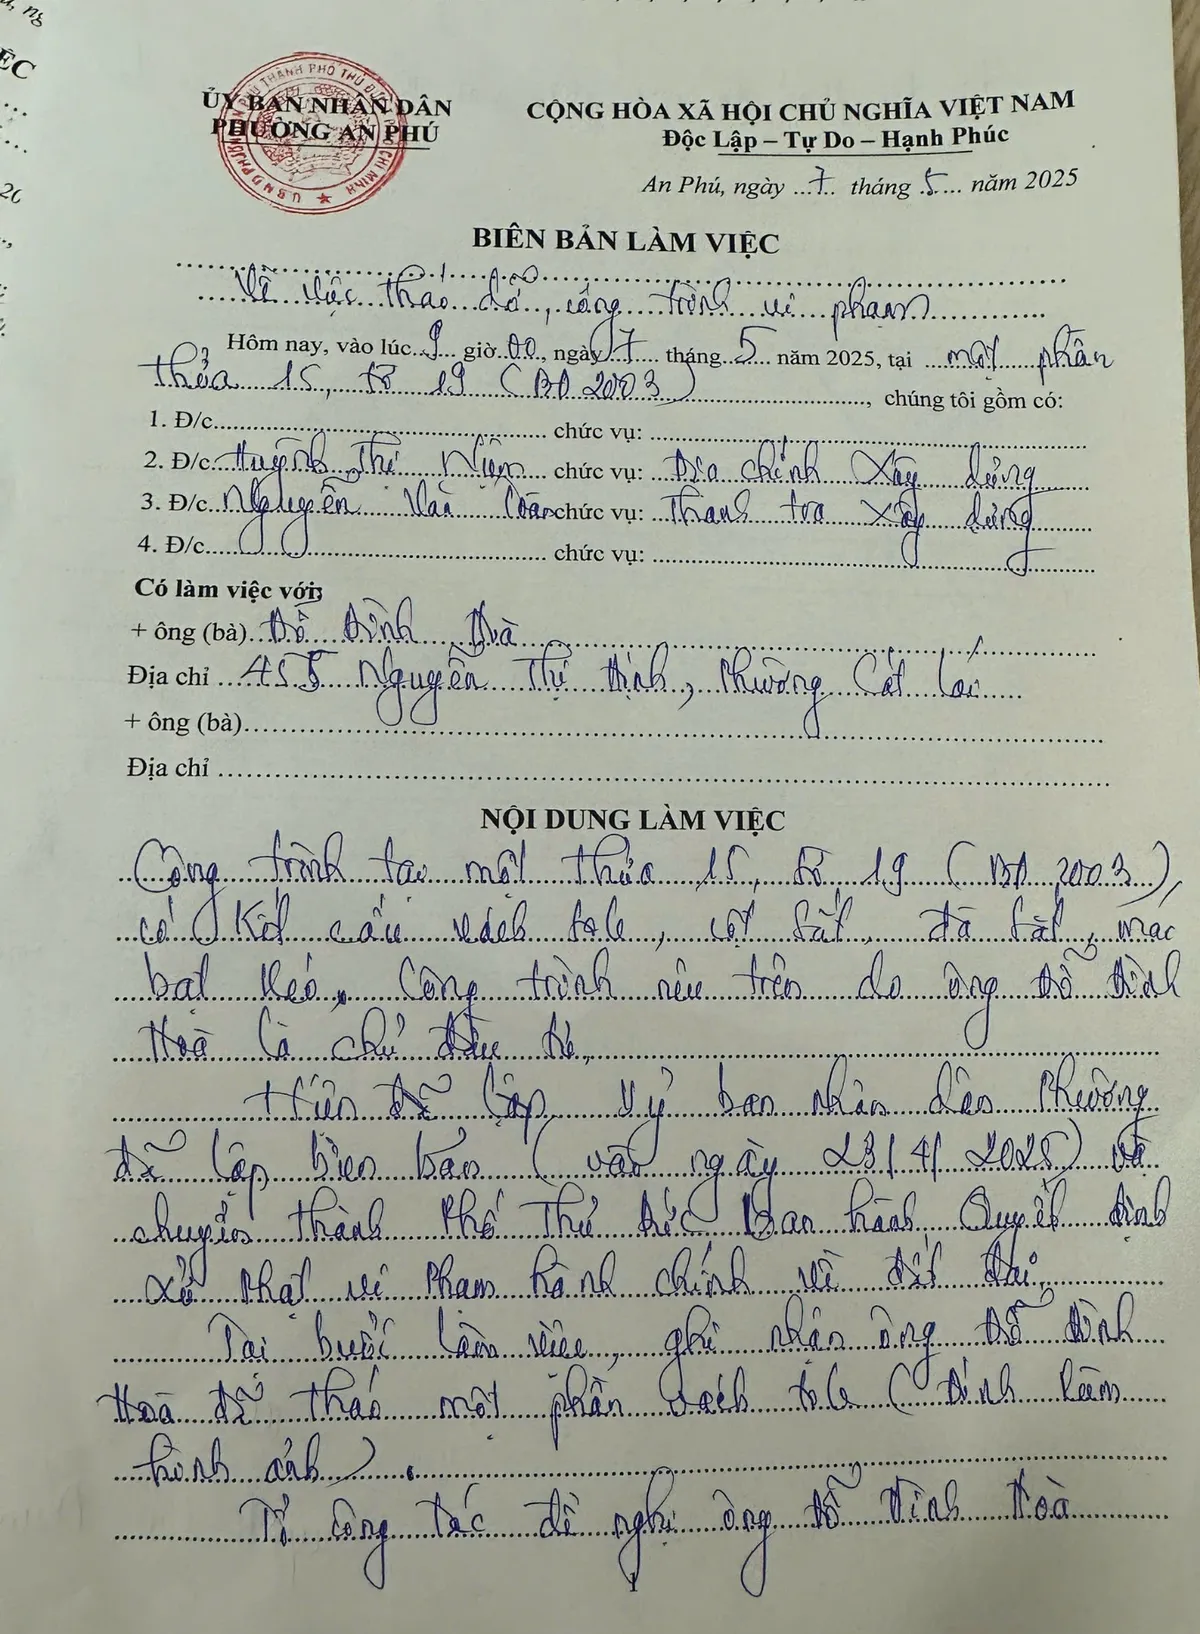 ỦY BAN NHÂN DÂN
PHƯỜNG AN PHÚ
CỘNG HÒA XÃ HỘI CHỦ NGHĨA VIỆT NAM
Độc Lập – Tự Do – Hạnh Phúc
An Phú, ngày 7 tháng 5 năm 2025
BIÊN BẢN LÀM VIỆC
Về việc tháo dỡ, công trình vi phạm
Hôm nay, vào lúc 9 giờ 00, ngày 7 tháng 5 năm 2025, tại một phần
thửa 15, tờ 19 (BĐ 2003), chúng tôi gồm có:
1. Đ/c chức vụ:
2. Đ/c Huỳnh Thị chức vụ: Địa chính Xây dựng
3. Đ/c Nguyễn Văn chức vụ: Thanh tra Xây dựng
4. Đ/c chức vụ:
Có làm việc với:
+ ông (bà) Đỗ Đình Hoà
Địa chỉ 455 Nguyễn Thị Định, Phường Cát Lái
+ ông (bà)
Địa chỉ
NỘI DUNG LÀM VIỆC
Công trình tại một thửa 15, tờ 19 (BĐ 2003),
có kết cấu vách tole, cột sắt, đà sắt, mái
bạt kéo, Công trình nêu trên do ông Đỗ Đình
Hoà là chủ đầu tư.
Hiện đã lập Uỷ ban nhân dân Phường
đã lập biên bản ( ngày 23/4/2025) và
chuyển thành Phố Thủ Đức Ban hành Quyết định
xử Phạt vi Phạm hành chính về đất đai,
Tại buổi làm việc, ghi nhận ông Đỗ Đình
Hoà đã tháo một phần vách tole ( Đính kèm
hình ảnh ).
Tổ công tác đề nghị ông Đỗ Đình Hoà
1